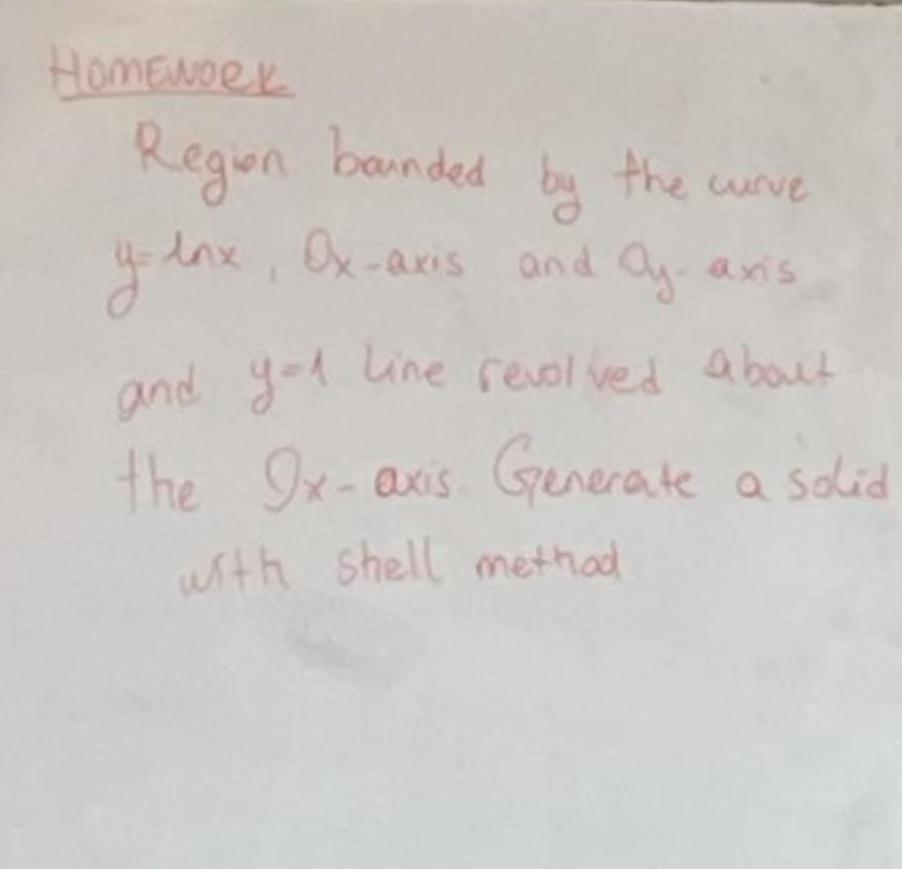 HOMEWORK
Region bounded by the curve
y=lnx, Ox-axis and Oy-axis
and y=1 line revolved about
the Ox-axis. Generate a solid
with shell method